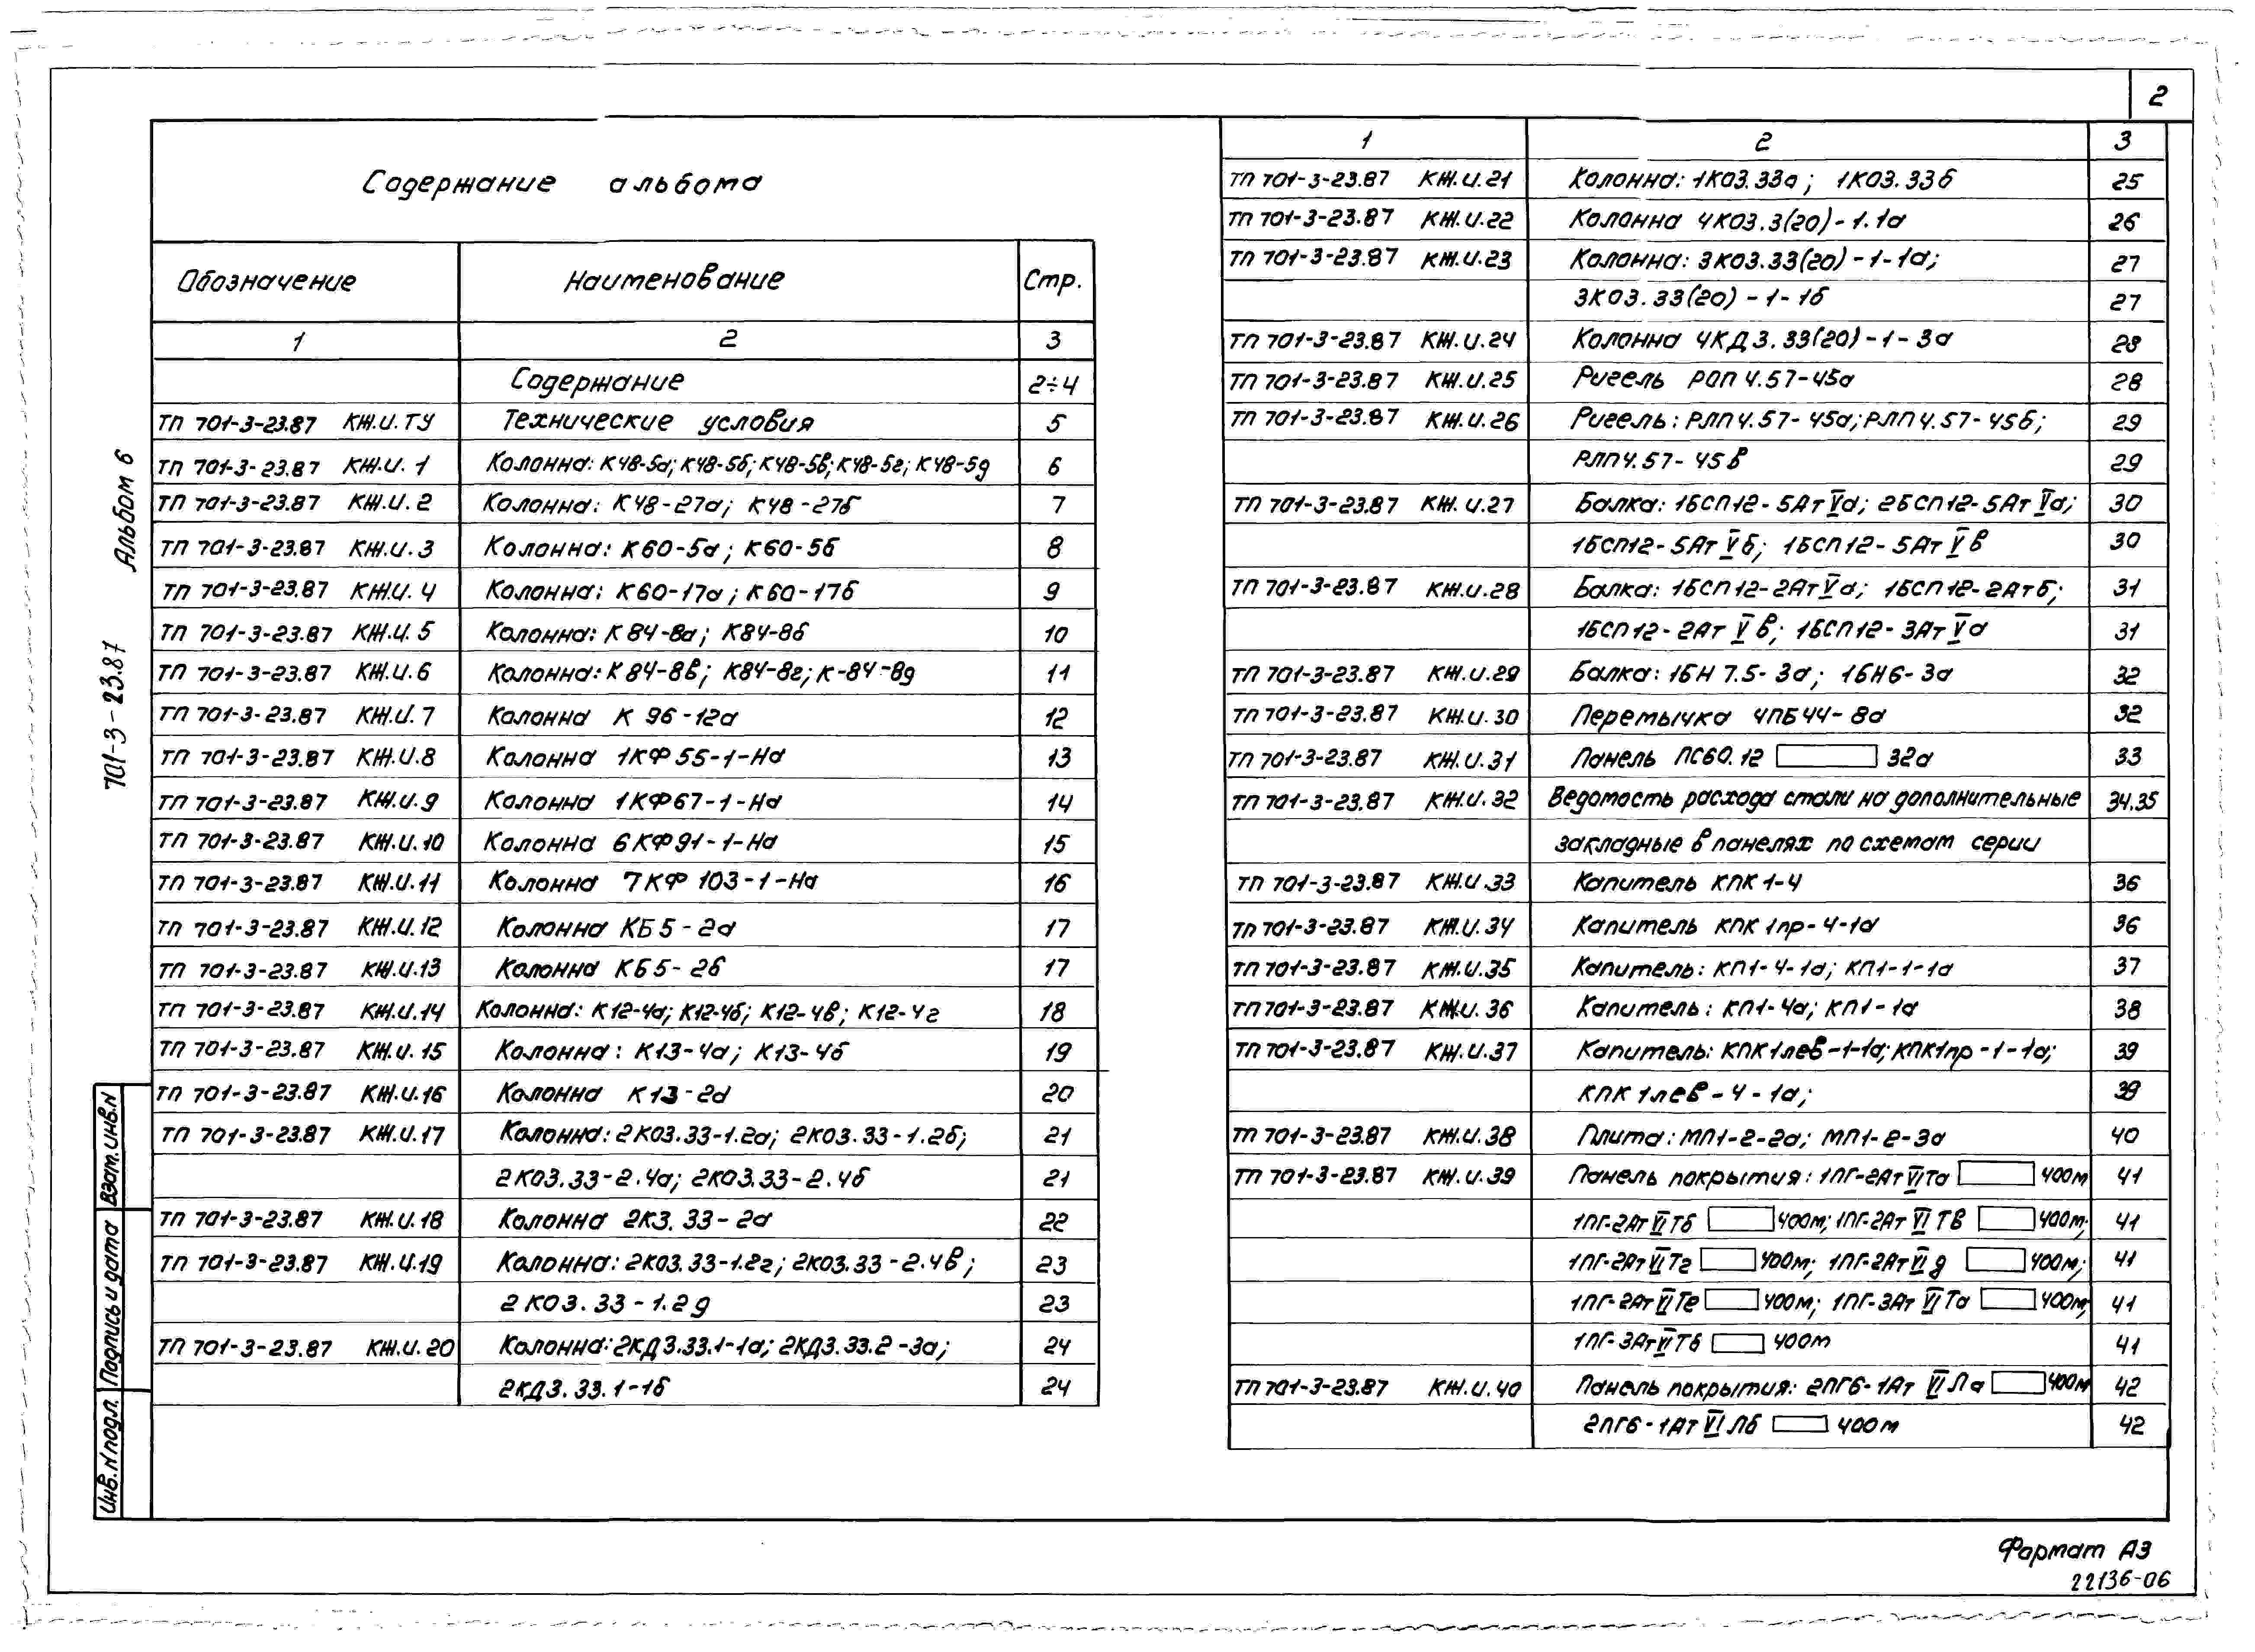 2
Содержание альбома
Обозначение Наименование Стр.
1 2 3
Содержание 2÷4
ТП 701-3-23.87 КЖ.И.ТУ Технические условия 5
ТП 701-3-23.87 КЖ.И.1 Колонна: К48-5а; К48-5б; К48-5в; К48-5г; К48-5д 6
ТП 701-3-23.87 КЖ.И.2 Колонна: К48-27а; К48-27б 7
ТП 701-3-23.87 КЖ.И.3 Колонна: К60-5а; К60-5б 8
ТП 701-3-23.87 КЖ.И.4 Колонна: К60-17а; К60-17б 9
ТП 701-3-23.87 КЖ.И.5 Колонна: К84-8а; К84-8б 10
ТП 701-3-23.87 КЖ.И.6 Колонна: К84-8в; К84-8г; К-84-8д 11
ТП 701-3-23.87 КЖ.И.7 Колонна К 96-12а 12
ТП 701-3-23.87 КЖ.И.8 Колонна 1КФ55-1-На 13
ТП 701-3-23.87 КЖ.И.9 Колонна 1КФ67-1-На 14
ТП 701-3-23.87 КЖ.И.10 Колонна 6КФ91-1-На 15
ТП 701-3-23.87 КЖ.И.11 Колонна 7КФ103-1-На 16
ТП 701-3-23.87 КЖ.И.12 Колонна КБ5-2а 17
ТП 701-3-23.87 КЖ.И.13 Колонна КБ5-2б 17
ТП 701-3-23.87 КЖ.И.14 Колонна: К12-4а; К12-4б; К12-4в; К12-4г 18
ТП 701-3-23.87 КЖ.И.15 Колонна: К13-4а; К13-4б 19
ТП 701-3-23.87 КЖ.И.16 Колонна К13-2а 20
ТП 701-3-23.87 КЖ.И.17 Колонна: 2КО3.33-1.2а; 2КО3.33-1.2б; 21
2КО3.33-2.4а; 2КО3.33-2.4б 21
ТП 701-3-23.87 КЖ.И.18 Колонна 2К3.33-2а 22
ТП 701-3-23.87 КЖ.И.19 Колонна: 2КО3.33-1.2г; 2КО3.33-2.4в; 23
2КО3.33-1.2д 23
ТП 701-3-23.87 КЖ.И.20 Колонна: 2КД3.33.1-1а; 2КД3.33.2-3а; 24
2КД3.33.1-1б 24
1 2 3
ТП 701-3-23.87 КЖ.И.21 Колонна: 1КО3.33а; 1КО3.33б 25
ТП 701-3-23.87 КЖ.И.22 Колонна 4КО3.3(20)-1.1а 26
ТП 701-3-23.87 КЖ.И.23 Колонна: 3КО3.33(20)-1-1а; 27
3КО3.33(20)-1-1б 27
ТП 701-3-23.87 КЖ.И.24 Колонна 4КД3.33(20)-1-3а 28
ТП 701-3-23.87 КЖ.И.25 Ригель РОП4.57-45а 28
ТП 701-3-23.87 КЖ.И.26 Ригель: РЛП4.57-45а; РЛП4.57-45б; 29
РЛП4.57-45в 29
ТП 701-3-23.87 КЖ.И.27 Балка: 1БСП12-5АтVа; 2БСП12-5АтVа; 30
1БСП12-5АтVб; 1БСП12-5АтVв 30
ТП 701-3-23.87 КЖ.И.28 Балка: 1БСП12-2АтVа; 1БСП12-2Атб; 31
1БСП12-2АтVв; 1БСП12-3АтVа 31
ТП 701-3-23.87 КЖ.И.29 Балка: 1БН7.5-3а; 1БН6-3а 32
ТП 701-3-23.87 КЖ.И.30 Перемычка 4ПБ44-8а 32
ТП 701-3-23.87 КЖ.И.31 Панель ПС60.12 32а 33
ТП 701-3-23.87 КЖ.И.32 Ведомость расхода стали на дополнительные 34,35
закладные в панелях по схемам серии
ТП 701-3-23.87 КЖ.И.33 Капитель КПК1-4 36
ТП 701-3-23.87 КЖ.И.34 Капитель КПК1пр-4-1а 36
ТП 701-3-23.87 КЖ.И.35 Капитель: КП1-4-1а; КП1-1-1а 37
ТП 701-3-23.87 КЖ.И.36 Капитель: КП1-4а; КП1-1а 38
ТП 701-3-23.87 КЖ.И.37 Капитель: КПК1лев-1-1а; КПК1пр-1-1а; 39
КПК1лев-4-1а; 39
ТП 701-3-23.87 КЖ.И.38 Плита: МП1-2-2а; МП1-2-3а 40
ТП 701-3-23.87 КЖ.И.39 Панель покрытия: 1ПГ-2АтVIТа 400м 41
1ПГ-2АтVIТб 400м; 1ПГ-2АтVIТв 400м; 41
1ПГ-2АтVIТг 400м; 1ПГ-2АтVIд 400м; 41
1ПГ-2АтVIТе 400м; 1ПГ-3АтVIТа 400м; 41
1ПГ-3АтVIТб 400м 41
ТП 701-3-23.87 КЖ.И.40 Панель покрытия: 2ПГ6-1АтVIЛа 400м 42
2ПГ6-1АтVIЛб 400м 42
701-3-23.87 Альбом 6
Инв.N подл. Подпись и дата Взам.инв.N
Формат А3
22136-06